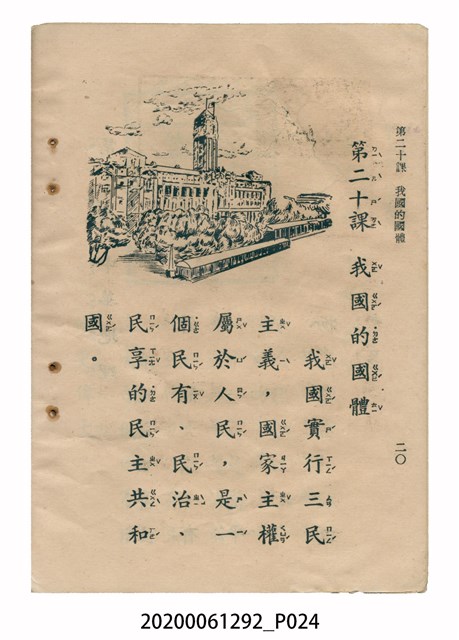 第二十課　我國的國體
二〇
第二十課　我國的國體
我國實行三民
主義，國家主權
屬於人民，是一
個民有、民治、
民享的民主共和
國。
20200061292_P024